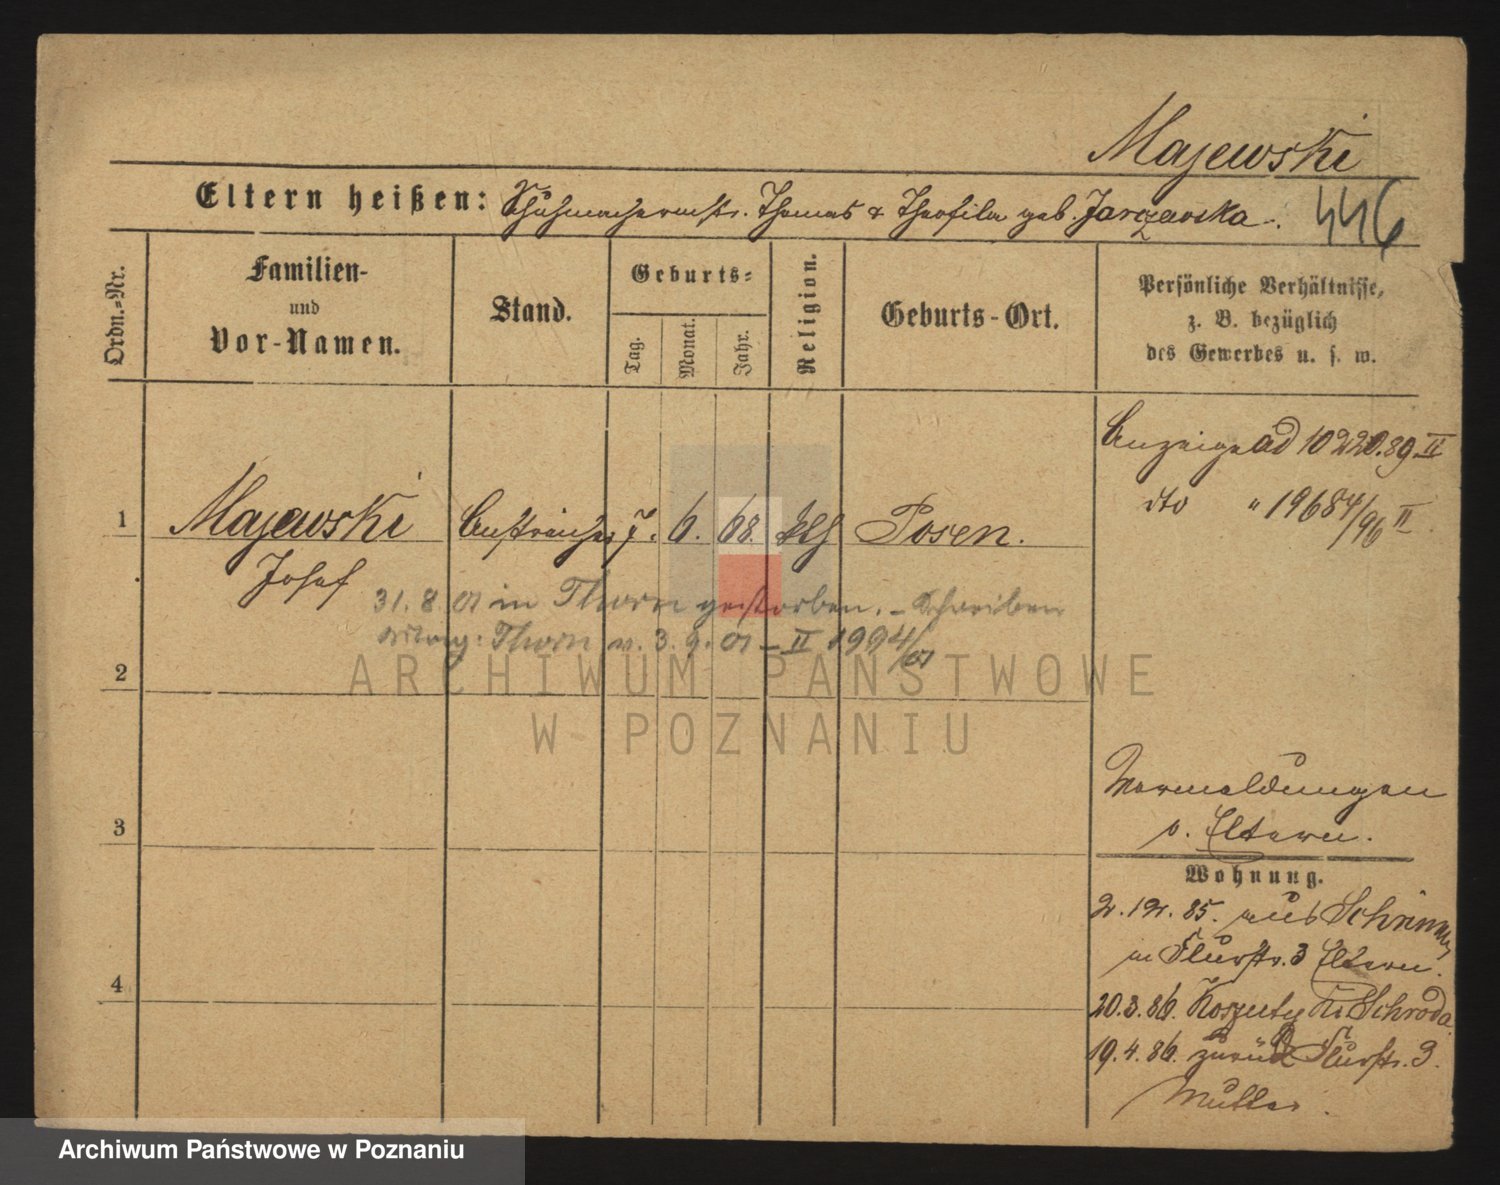 Majewski
Eltern heißen: Schuhmachermstr. Thomas & Theofila geb. Jarczewska.
446
Ordn.-Nr.
Familien-
und
Vor-Namen.
Stand.
Geburts-
Tag.
Monat.
Jahr.
Religion.
Geburts-Ort.
Persönliche Verhältnisse,
z. B. bezüglich
des Gewerbes u. s. w.
Anzeige ad 10220.89.II
dto " 19684/96 II
1
Majewski
Josef
Anstreicher
7.
6.
68.
kth
Posen.
31.8.01 in Thorn gestorben. – Schreiben
Thorn v. 3.9.01 – II 1994/01
2
3
4
Vormeldungen
s. Eltern.
Wohnung.
2.12.85. aus Schrimm
in Flurstr. 3 Eltern.
20.3.86. Koszuty Kr. Schroda
19.4.86. zurück Flurstr. 3.
Mutter.
ARCHIWUM PAŃSTWOWE
W POZNANIU
Archiwum Państwowe w Poznaniu